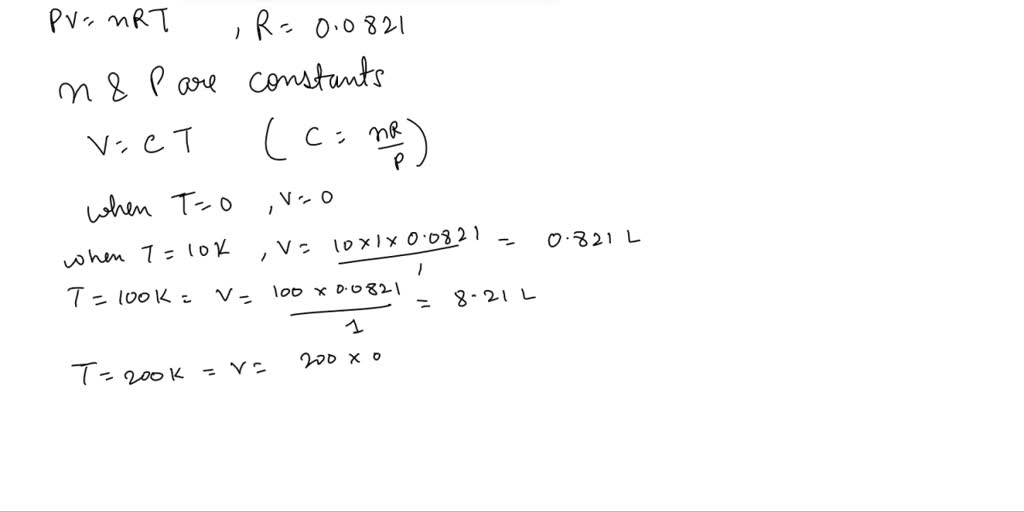 PV = nRT , R = 0.0821
n & P are constants
V = CT ( C = nR/P )
when T = 0 , V = 0
when T = 10K , V = 10 x 1 x 0.0821 / 1 = 0.821 L
T = 100K = V = 100 x 0.0821 / 1 = 8.21 L
T = 200K = V = 200 x 0